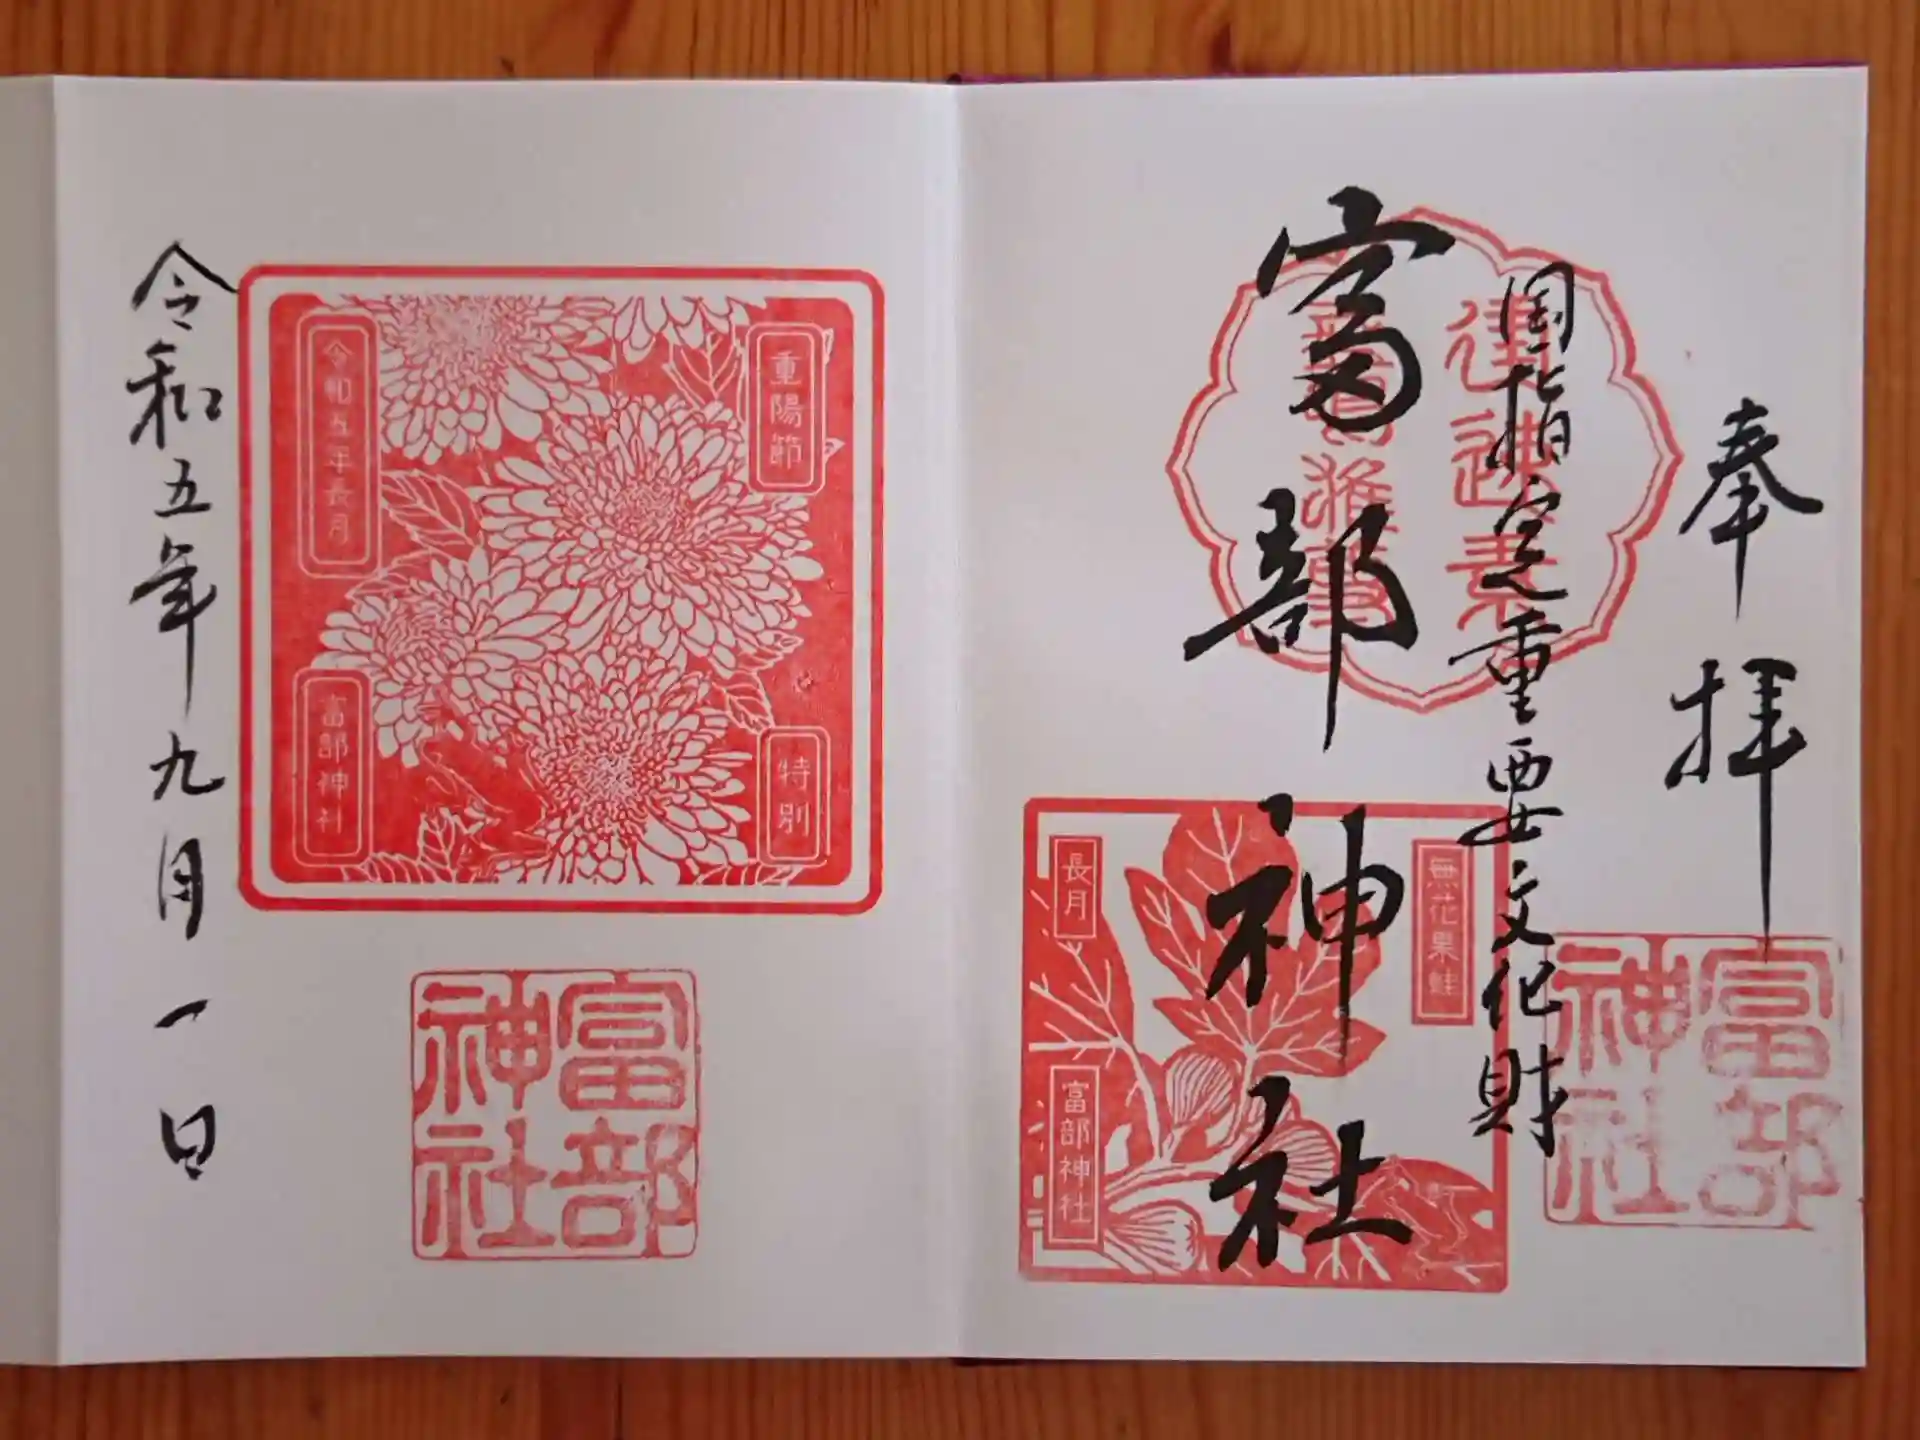 奉拝
国指定重要文化財
富部神社
富部神社
無花果蛙
長月
富部神社
重陽節
特別
令和五年長月
富部神社
富部神社
令和五年九月一日